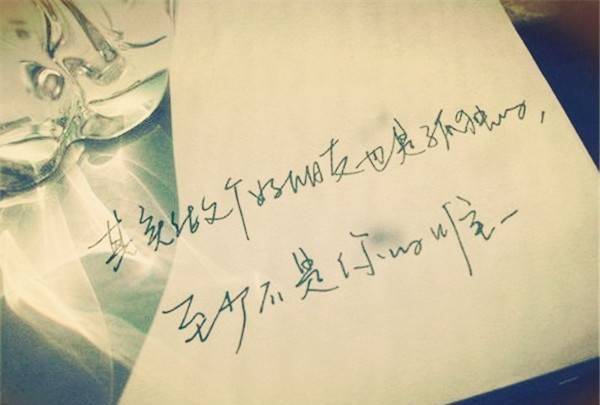 其实做个好朋友也是孤独的，
至少不是你的唯一